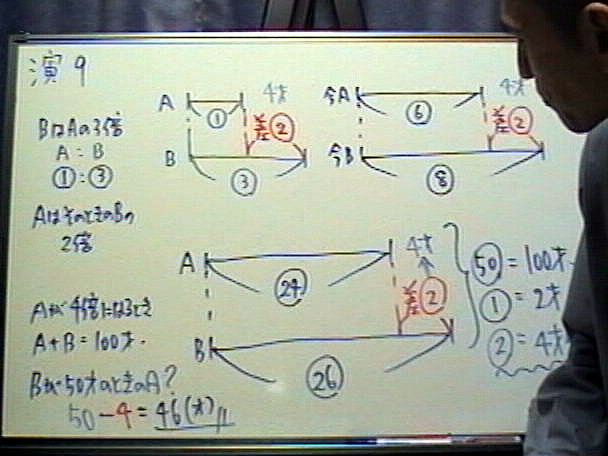 演9
BはAの3倍
A:B
①:③
Aはそのときの Bの
2倍
Aが4倍になるとき
A+B=100才.
Bが50才のときのA?
50-4=46(才)
A ① 4才
差②
B ③
今A ⑥ 4才
差②
今B ⑧
A ㉔ 4才
差②
B ㉖
㊿=100才.
①=2才
②=4才